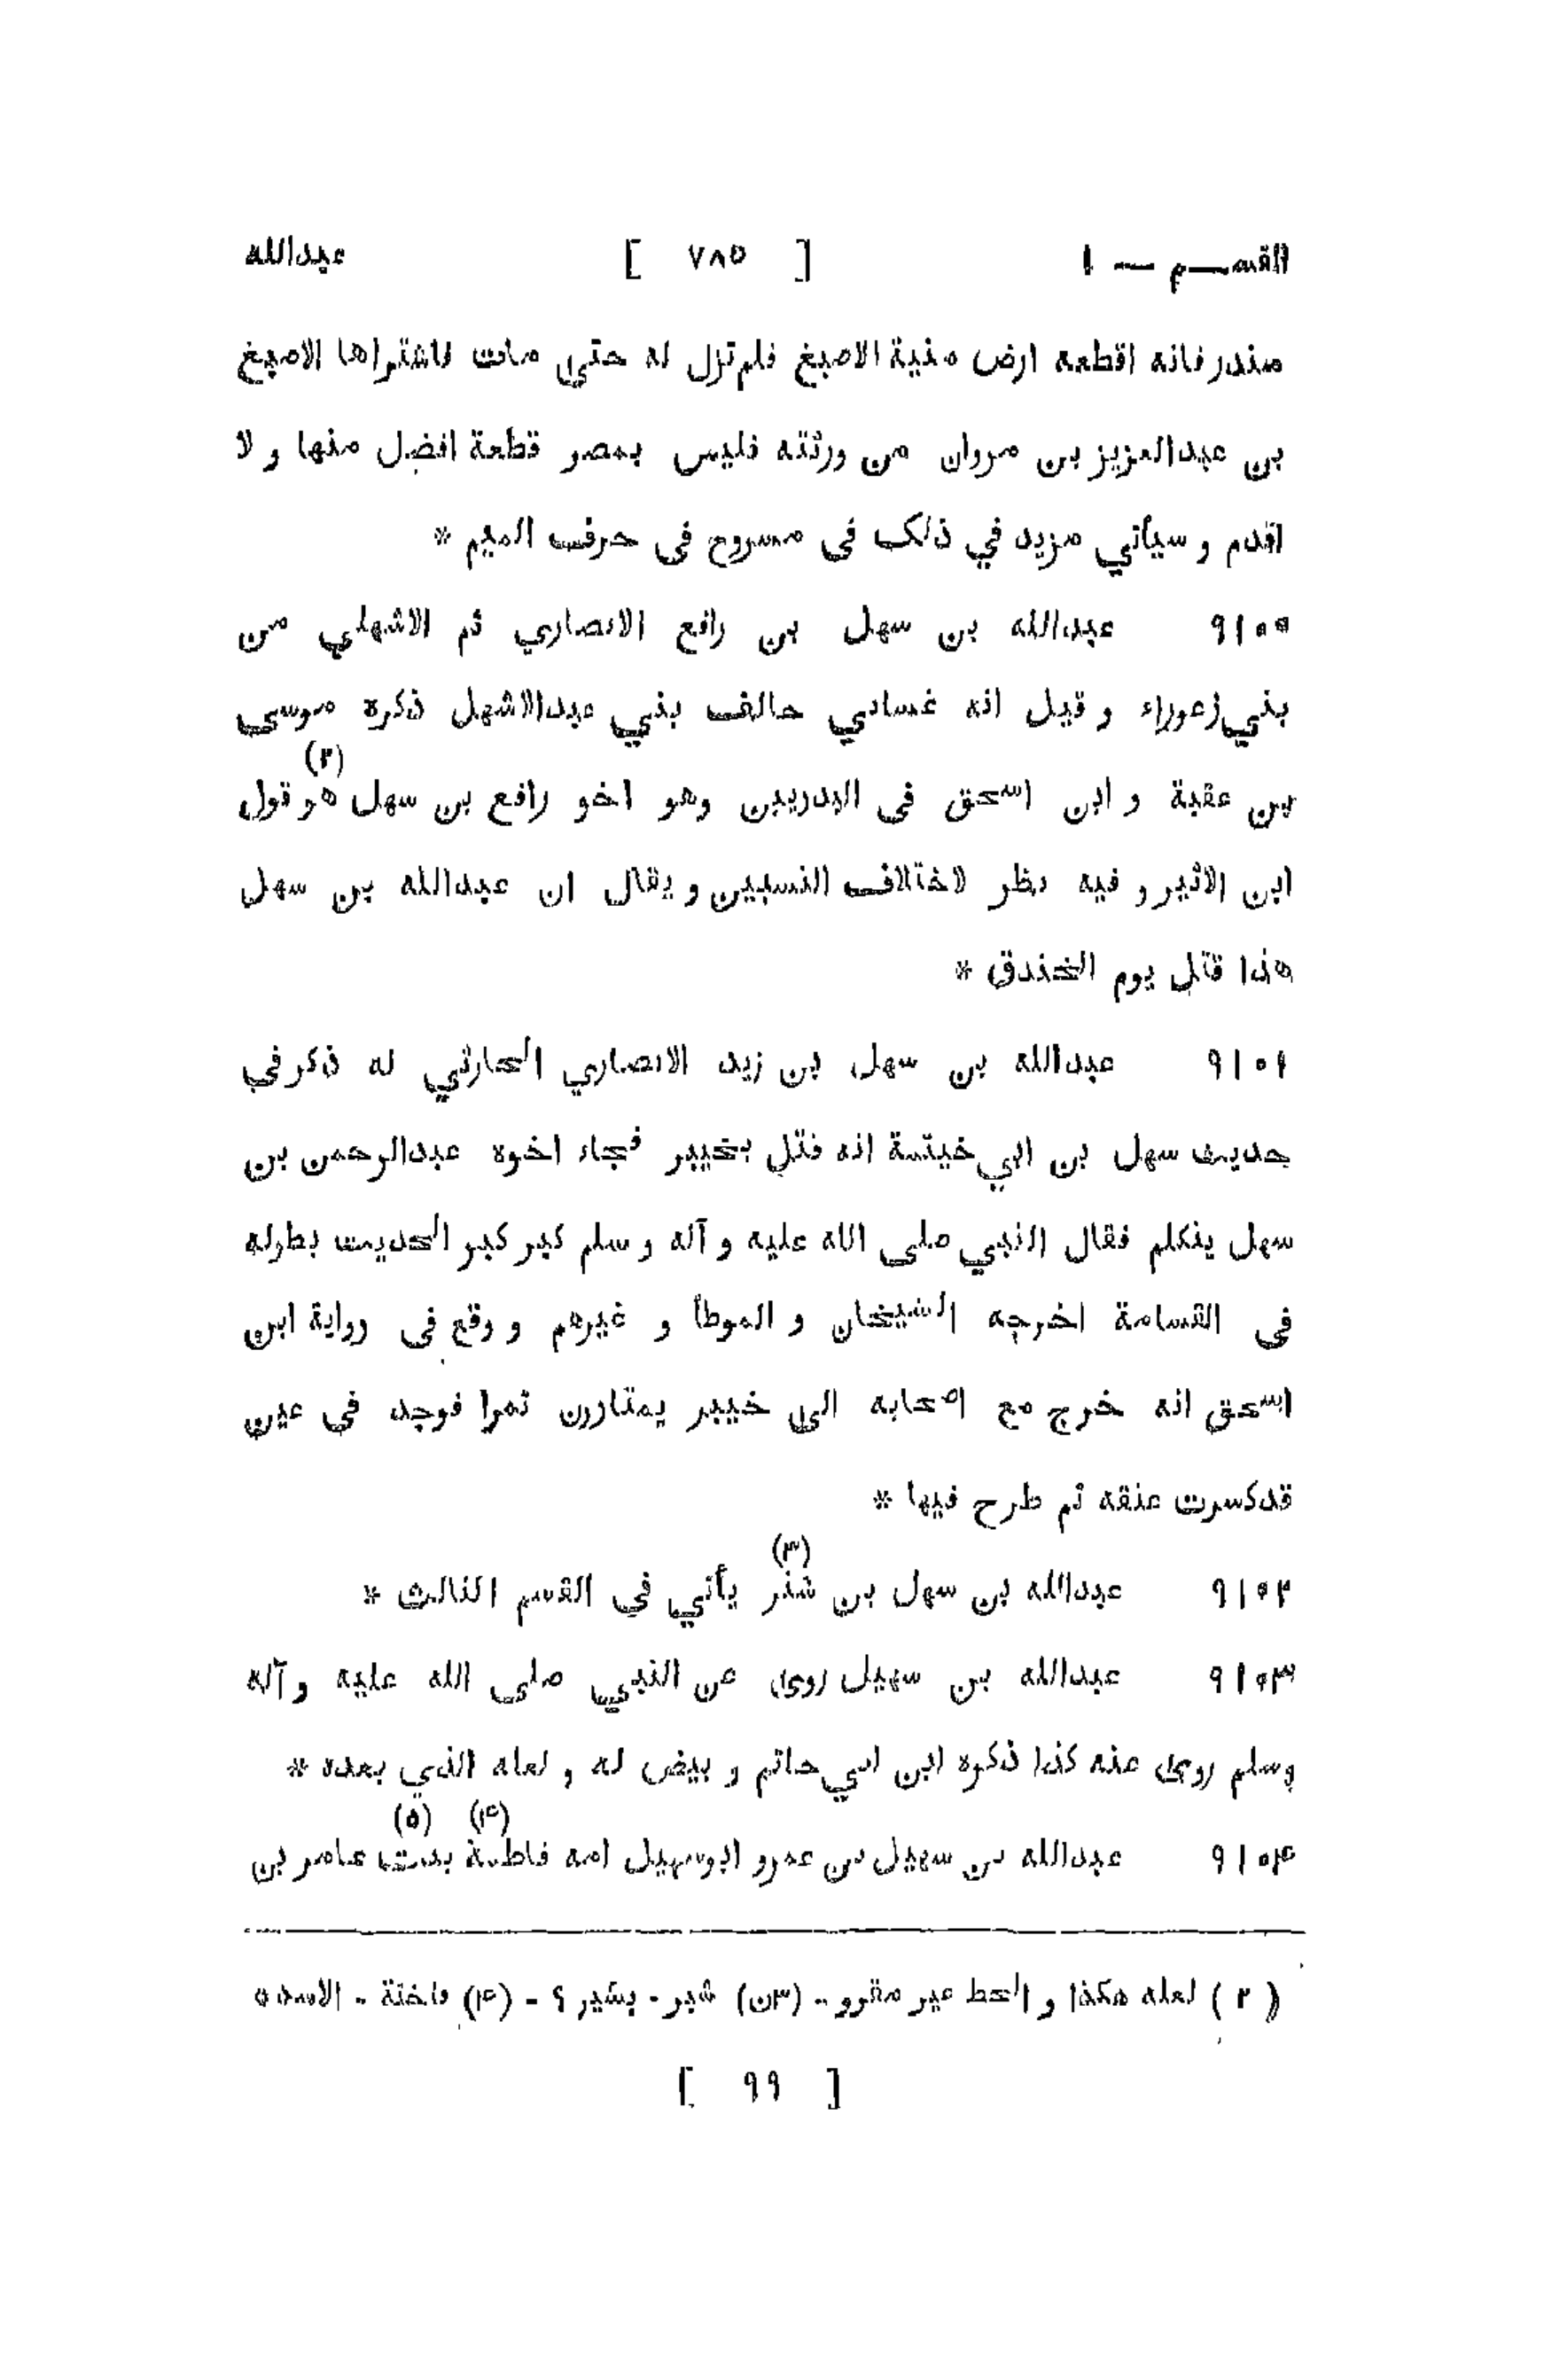 القسم — ١ [ ٧٨٥ ] عبدالله
سندر فانه اقطعه ارض منية الاصبغ فلم تزل له حتى مات فاشتراها الاصبغ
بن عبدالعزيز بن مروان من ورثته فليس بمصر قطعة افضل منها و لا
اقدم و سيأتي مزيد في ذلك فى مسروح فى حرف الميم *
٩١٠٠ عبدالله بن سهل بن رافع الانصاري ثم الاشهلي من
بني زعوراء و قيل انه غساني حالف بني عبدالاشهل ذكره موسى
بن عقبة و ابن اسحق فى البدريين وهو اخو رافع بن سهل هو (٢) قول
ابن الاثير و فيه نظر لاختلاف النسبين و يقال ان عبدالله بن سهل
هذا قتل يوم الخندق *
٩١٠١ عبدالله بن سهل بن زيد الانصاري الحارثي له ذكر في
حديث سهل بن ابي خيثمة انه قتل بخيبر فجاء اخوه عبدالرحمن بن
سهل يتكلم فقال النبي صلى الله عليه و آله و سلم كبر كبر الحديث بطوله
فى القسامة اخرجه الشيخان و الموطأ و غيرهم و وقع فى رواية ابن
اسحق انه خرج مع اصحابه الى خيبر يمتارون تمرا فوجد في عين
قدكسرت عنقه ثم طرح فيها *
٩١٠٢ عبدالله بن سهل بن شنر (٣) يأتي في القسم الثالث *
٩١٠٣ عبدالله بن سهيل روى عن النبي صلى الله عليه و آله
وسلم روى عنه كذا ذكره ابن ابي حاتم و بيض له و لعله الذي بعده *
٩١٠۴ عبدالله بن سهيل بن عمرو ابوسهيل امه فاطمة (۴) بنت (۵) عامر بن
( ٢ ) لعله هكذا و الخط غير مقرو - (٣ن) شبر - بشير ؟ - (۴) فاختة - الاسد ٥
[ ٩٩ ]